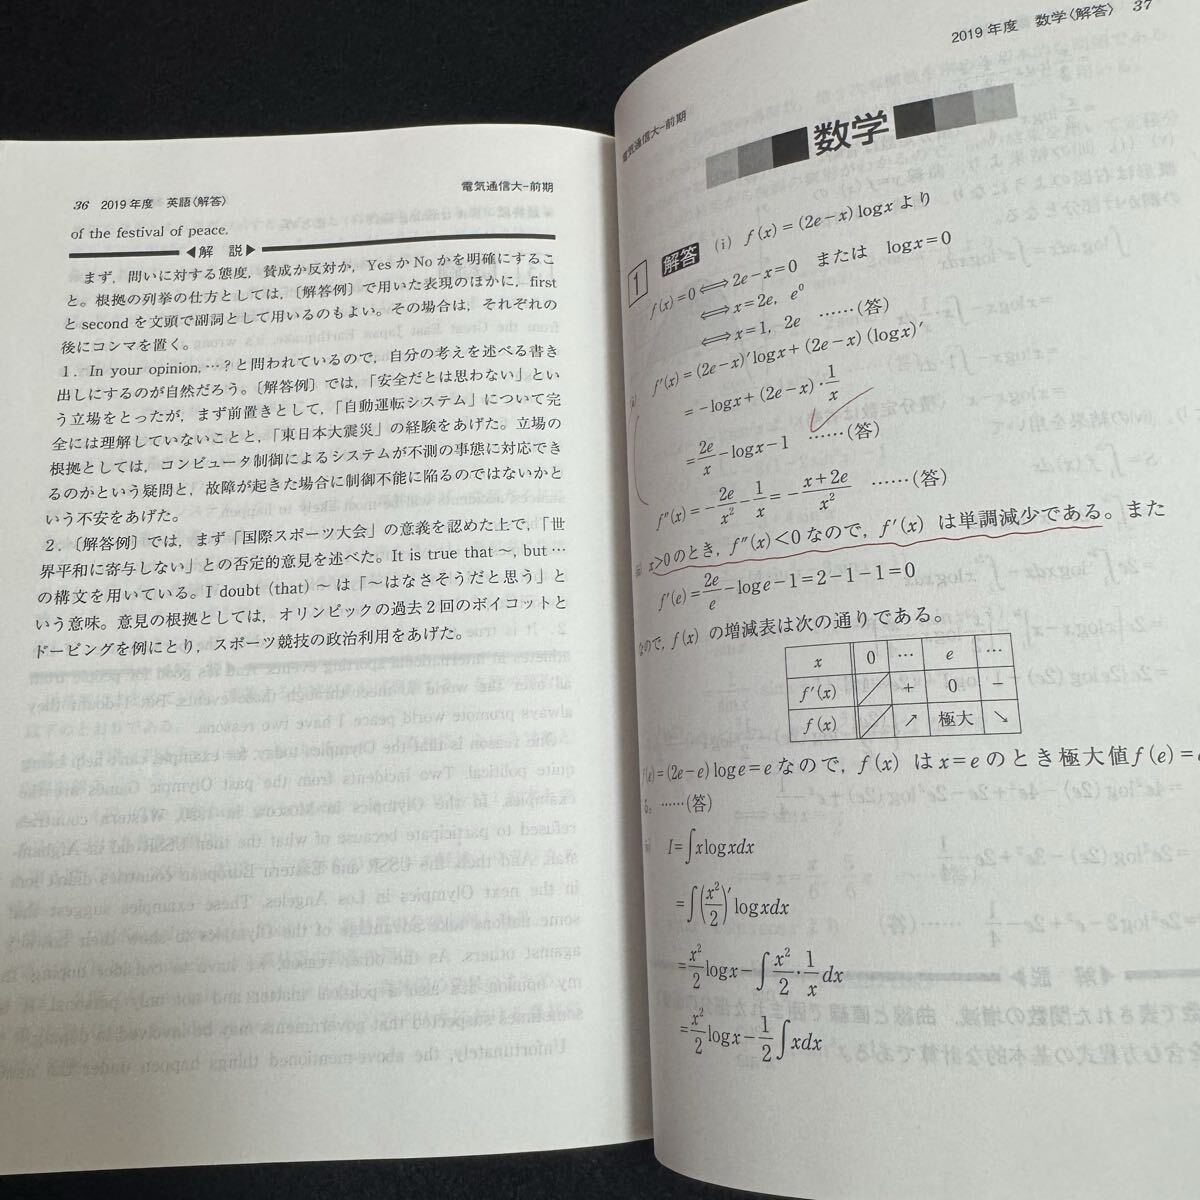 36 2019年度 英語〈解答〉 電気通信大-前期
of the festival of peace.
◀解 説▶
まず，問いに対する態度，賛成か反対か，Yes か No かを明確にするこ
と。根拠の列挙の仕方としては，〔解答例〕で用いた表現のほかに，first
と second を文頭で副詞として用いるのもよい。その場合は，それぞれの
後にコンマを置く。
1．In your opinion, …？と問われているので，自分の考えを述べる書き
出しにするのが自然だろう。〔解答例〕では，「安全だとは思わない」とい
う立場をとったが，まず前置きとして，「自動運転システム」について完
全には理解していないことと，「東日本大震災」の経験をあげた。立場の
根拠としては，コンピュータ制御によるシステムが不測の事態に対応でき
るのかという疑問と，故障が起きた場合に制御不能に陥るのではないかと
いう不安をあげた。
2．〔解答例〕では，まず「国際スポーツ大会」の意義を認めた上で，「世
界平和に寄与しない」との否定的意見を述べた。It is true that ～, but …
の構文を用いている。I doubt (that) ～ は「～はなさそうだと思う」と
いう意味。意見の根拠としては，オリンピックの過去2回のボイコットと
ドーピングを例にとり，スポーツ競技の政治利用をあげた。
2019年度 数学〈解答〉 37
電気通信大-前期
数学
1 解答 (i) f(x)=(2e−x)logx より
f(x)=0⟺2e−x=0 または logx=0
⟺x=2e, e⁰
⟺x=1, 2e ……(答)
f′(x)=(2e−x)′logx+(2e−x)(logx)′
=−logx+(2e−x)·1/x
=2e/x−logx−1 ……(答)
f″(x)=−2e/x²−1/x=−(x+2e)/x² ……(答)
x>0のとき，f″(x)<0なので，f′(x) は単調減少である。また
f′(e)=2e/e−loge−1=2−1−1=0
なので，f(x) の増減表は次の通りである。
x 0 … e …
f′(x) + 0 −
f(x) ↗ 極大 ↘
f(e)=(2e−e)loge=e なので，f(x) は x=e のとき極大値 f(e)=
る。……(答)
I=∫xlogxdx
=∫(x²/2)′logxdx
=x²/2 logx−∫x²/2·1/x dx
=x²/2 logx−1/2∫xdx